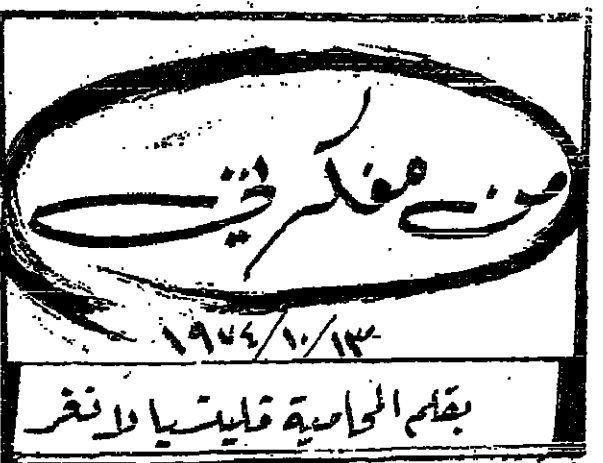 من مفكرتي
١٩٧٤/١٠/١٣
بقلم المحامية فليتسيا لانغر